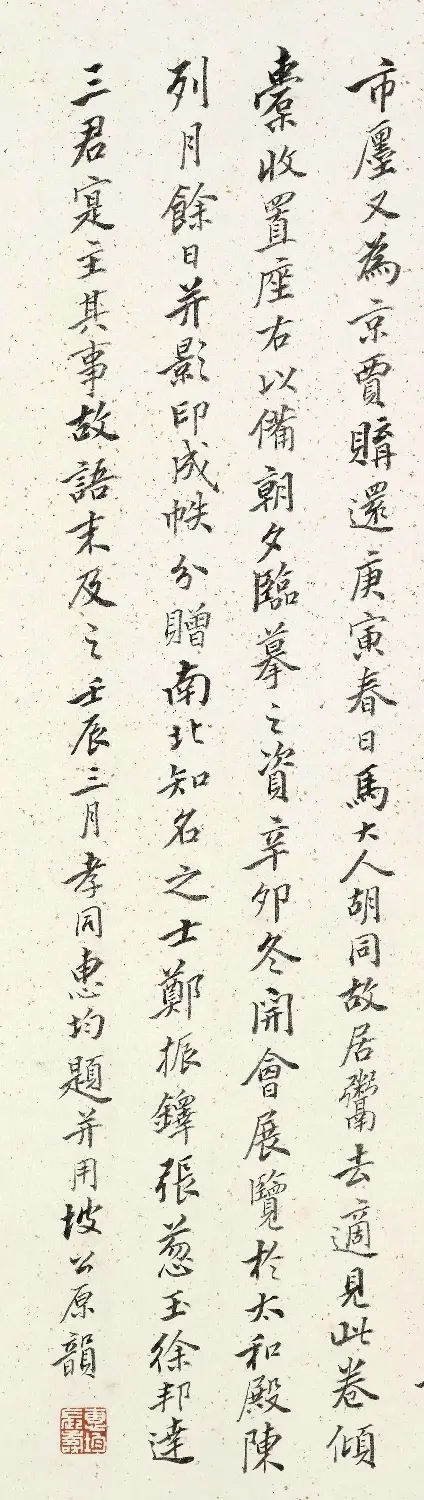 市廛又為京賈購還庚寅春日馬大人胡同故居鬻去適見此卷傾
橐收置座右以備朝夕臨摹之資辛卯冬開會展覽於太和殿陳
列月餘日并影印成帙分贈南北知名之士鄭振鐸張蔥玉徐邦達
三君寔主其事故語末及之壬辰三月孝同惠均題并用坡公原韻